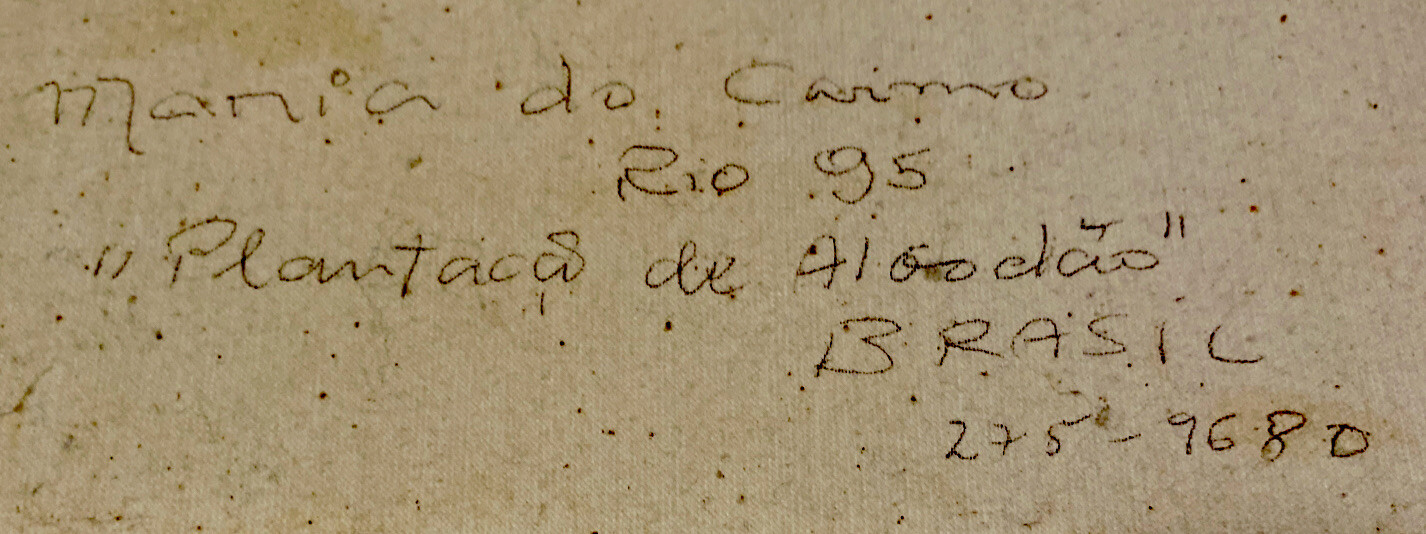 Maria do Carmo
Rio 95
"Plantação de Algodão"
BRASIL
275-9680